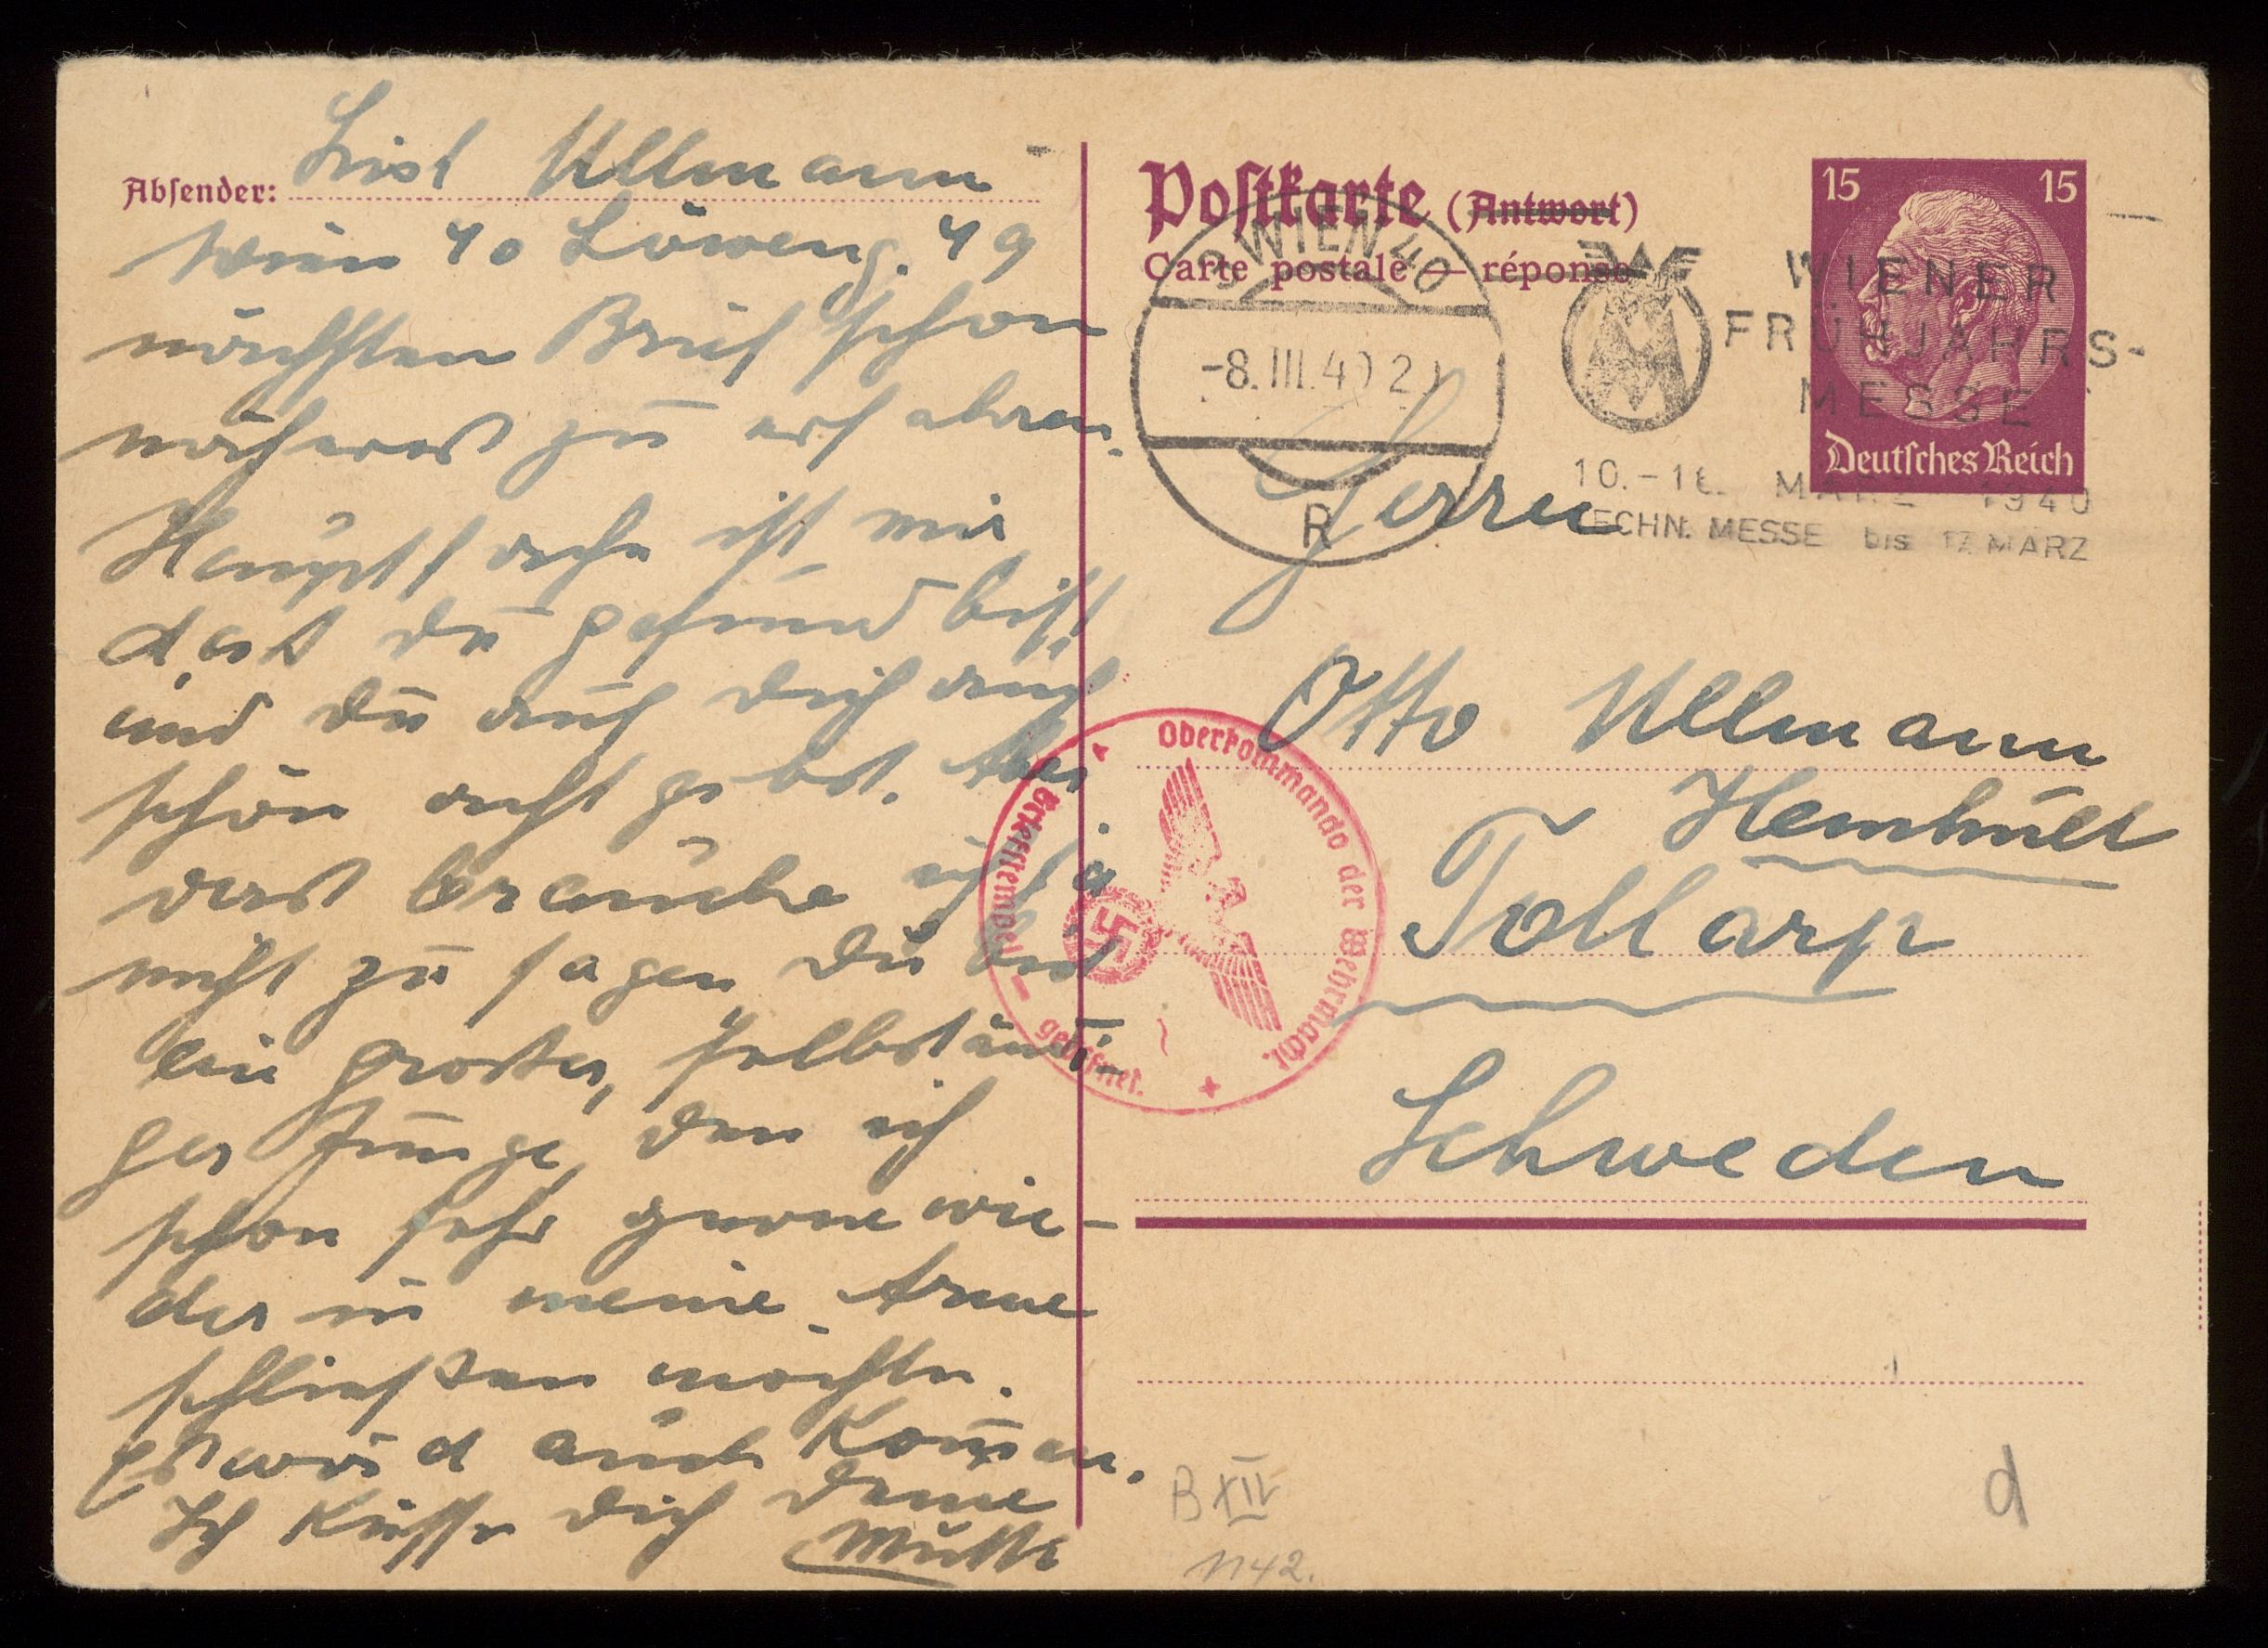 Absender: Lisl Ullmann
Wien 40 Löweng. 49
nächsten Brief schon
näheres zu erfahren.
Hauptsache ist mir
dass du gesund bist
und du auf dich auch
schön acht gebst. Aber
das brauche ich ja
nicht zu sagen, du bist
ein grosser, selbständi-
ger Junge, den ich
schon sehr gerne wie-
der in meine Arme
schließen möchte.
Es wird auch kommen.
Ich küsse dich deine
Mutti
Postkarte (Antwort)
Carte postale — réponse
WIEN 40
-8.III.40 2
R
WIENER
FRÜHJAHRS-
MESSE
10.-16. MÄRZ 1940
TECHN. MESSE bis 17. MÄRZ
15 15
Deutsches Reich
Herrn
Otto Ullmann
Tollarp
Schweden
Oberkommando der Wehrmacht.
geöffnet.
B XIV
1142.
d